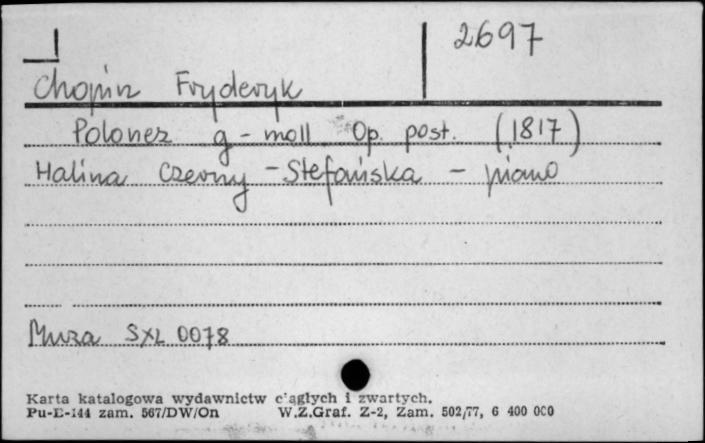 2697
Chopin Fryderyk
Polonez g-moll Op. post. (1817)
Halina Czerny-Stefańska - piano
Muza SXL 0078
Karta katalogowa wydawnictw ciągłych i zwartych.
Pu-E-144 zam. 567/DW/On W.Z.Graf. Z-2, Zam. 502/77, 6 400 000